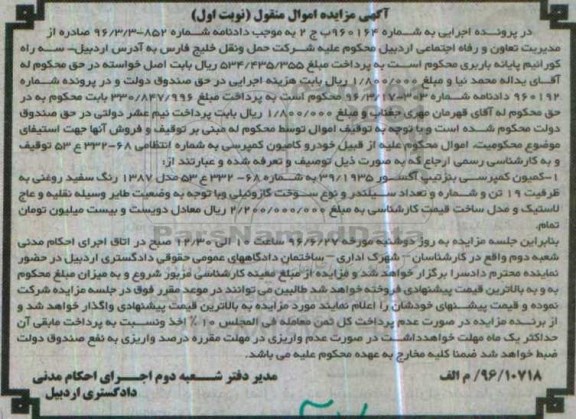 آگهی مزایده اموال منقول (نوبت اول)
در پرونده اجرایی به شماره ۹۶۰۱۶۴ ب ج ۲ به موجب دادنامه شماره ۸۵۲-۹۶/۳/۳ صادره از
مدیریت تعاون و رفاه اجتماعی اردبیل محکوم علیه شرکت حمل ونقل خلیج فارس به آدرس اردبیل- سه راه
کورائیم پایانه باربری محکوم است به پرداخت مبلغ ۵۳۴/۴۳۵/۳۵۵ ریال بابت اصل خواسته در حق محکوم له
آقای یداله محمد نیا و مبلغ ۱/۸۰۰/۰۰۰ ریال بابت هزینه اجرایی در حق صندوق دولت و در پرونده شماره
۹۶۰۱۹۲ دادنامه شماره ۳۰۳-۹۶/۳/۱۷ محکوم است به پرداخت مبلغ ۳۳۰/۸۴۷/۹۹۶ بابت محکوم به در
حق محکوم له آقای قهرمان مهری جفتاب و مبلغ ۱/۸۰۰/۰۰۰ ریال بابت پرداخت نیم عشر دولتی در حق صندوق
دولت محکوم شده است و با توجه به توقیف اموال توسط محکوم له مبنی بر توقیف و فروش آنها جهت استیفای
موضوع محکومیت، اموال محکوم علیه از قبیل خودرو کامیون کمپرسی به شماره انتظامی ۶۸-۳۳۲ ع ۵۳ توقیف
و به کارشناسی رسمی ارجاع که به صورت ذیل توصیف و تعرفه شده و عبارتند از:
۱-کمیون کمپرسی بنزتیپ آکسور ۳۹/۱۹۳۵ به شماره ۶۸-۳۳۲ ع ۵۳ مدل ۱۳۸۷ رنگ سفید روغنی به
ظرفیت ۱۹ تن و شماره و تعداد سیلندر و نوع سوخت گازوئیلی وبا توجه به وضعیت ظاهر وسیله نقلیه و عاج
لاستیک و مدل ساخت قیمت کارشناسی به مبلغ ۲/۲۰۰/۰۰۰/۰۰۰ ریال معادل دویست و بیست میلیون تومان
تمام.
بنابراین جلسه مزایده به روز دوشنبه مورخه ۹۶/۶/۲۷ ساعت ۱۰ الی ۱۲/۳۰ صبح در اتاق اجرای احکام مدنی
شعبه دوم واقع در کارشناسان – شهرک اداری – ساختمان دادگاههای عمومی حقوقی دادگستری اردبیل در حضور
نماینده محترم دادسرا برگزار خواهد شد و مزایده از مبلغ معینه کارشناسی مزبور شروع و به میزان مبلغ محکوم
به و به بالاترین قیمت پیشنهادی فروخته خواهد شد طالبین می توانند در موعد مقرر فوق در جلسه مزایده شرکت
نموده و قیمت پیشنهای خودشان را اعلام نمایند مورد مزایده به بالاترین قیمت پیشنهادی واگذار خواهد شد و
از برنده مزایده در صورت عدم پرداخت کل ثمن معامله فی المجلس ۱۰٪ اخذ ونسبت به پرداخت مابقی آن
حداکثر یک ماه مهلت خواهدداشت در صورت عدم واریزی در مهلت مقرره درصد واریزی به نفع صندوق دولت
ضبط خواهد شد ضمنا کلیه مخارج به عهده محکوم علیه می باشد.
۹۶/۱۰۷۱۸/ م الف
مدیر دفتر شعبه دوم اجرای احکام مدنی
دادگستری اردبیل
ParsNamadData